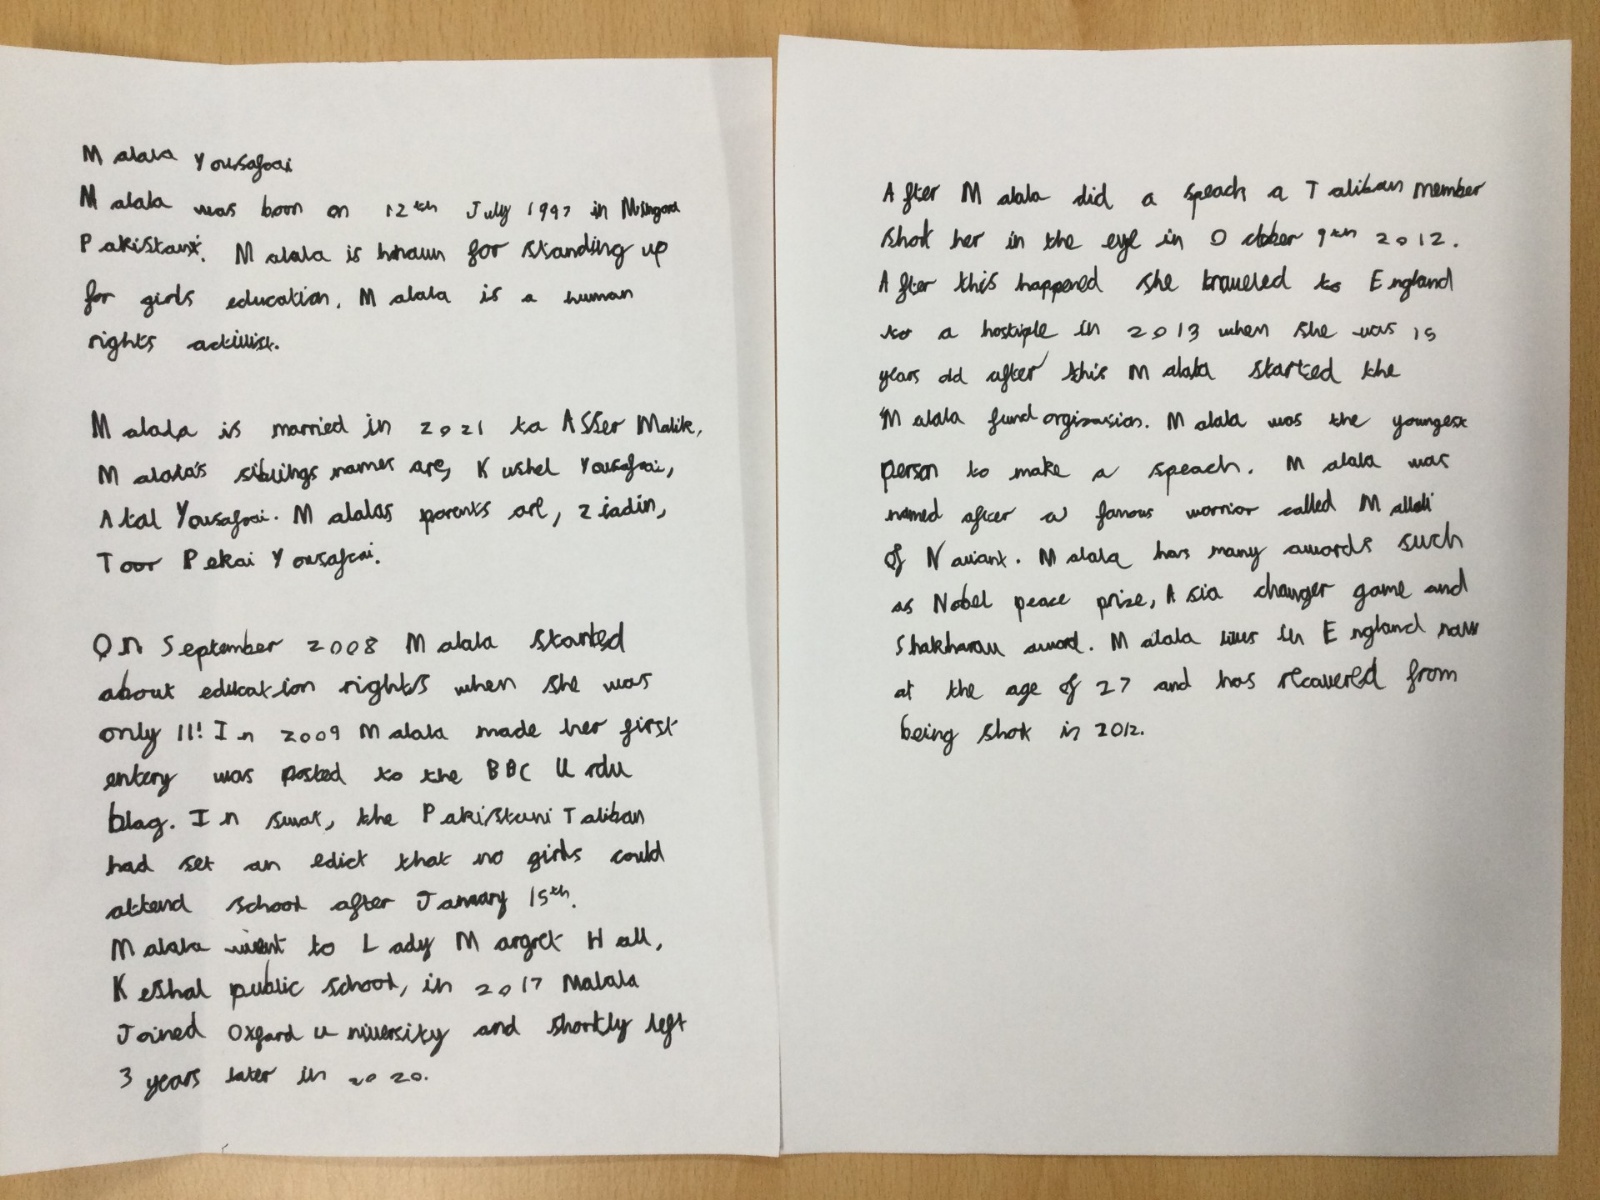 Malala Yousafzai
Malala was born on 12th July 1997 in Mingora
Pakistan. Malala is known for standing up
for girls education. Malala is a human
rights activist.
Malala is married in 2021 to Asser Malik,
Malala's siblings names are, Kushel Yousafzai,
Atal Yousafzai. Malalas parents are, Ziadin,
Toor Pekai Yousafzai.
On September 2008 Malala started
about education rights when she was
only 11! In 2009 Malala made her first
entery was posted to the BBC Urdu
blog. In swat, the Pakistani Taliban
had set an edict that no girls could
attend school after January 15th.
Malala went to Lady Margret Hall,
Keshal public school, in 2017 Malala
Joined Oxford university and shortly left
3 years later in 2020.
After Malala did a speach a Taliban member
shot her in the eye in October 9th 2012.
After this happened she traveled to England
to a hostiple in 2013 when she was 15
years old after this Malala started the
Malala fund orgizasion. Malala was the youngest
person to make a speach. Malala was
named after a famous worrior called Mallali
of Maiwand. Malala has many awords such
as Nobel peace prize, Asia changer game and
Shakharau award. Malala lives in England now
at the age of 27 and has recovered from
being shot in 2012.